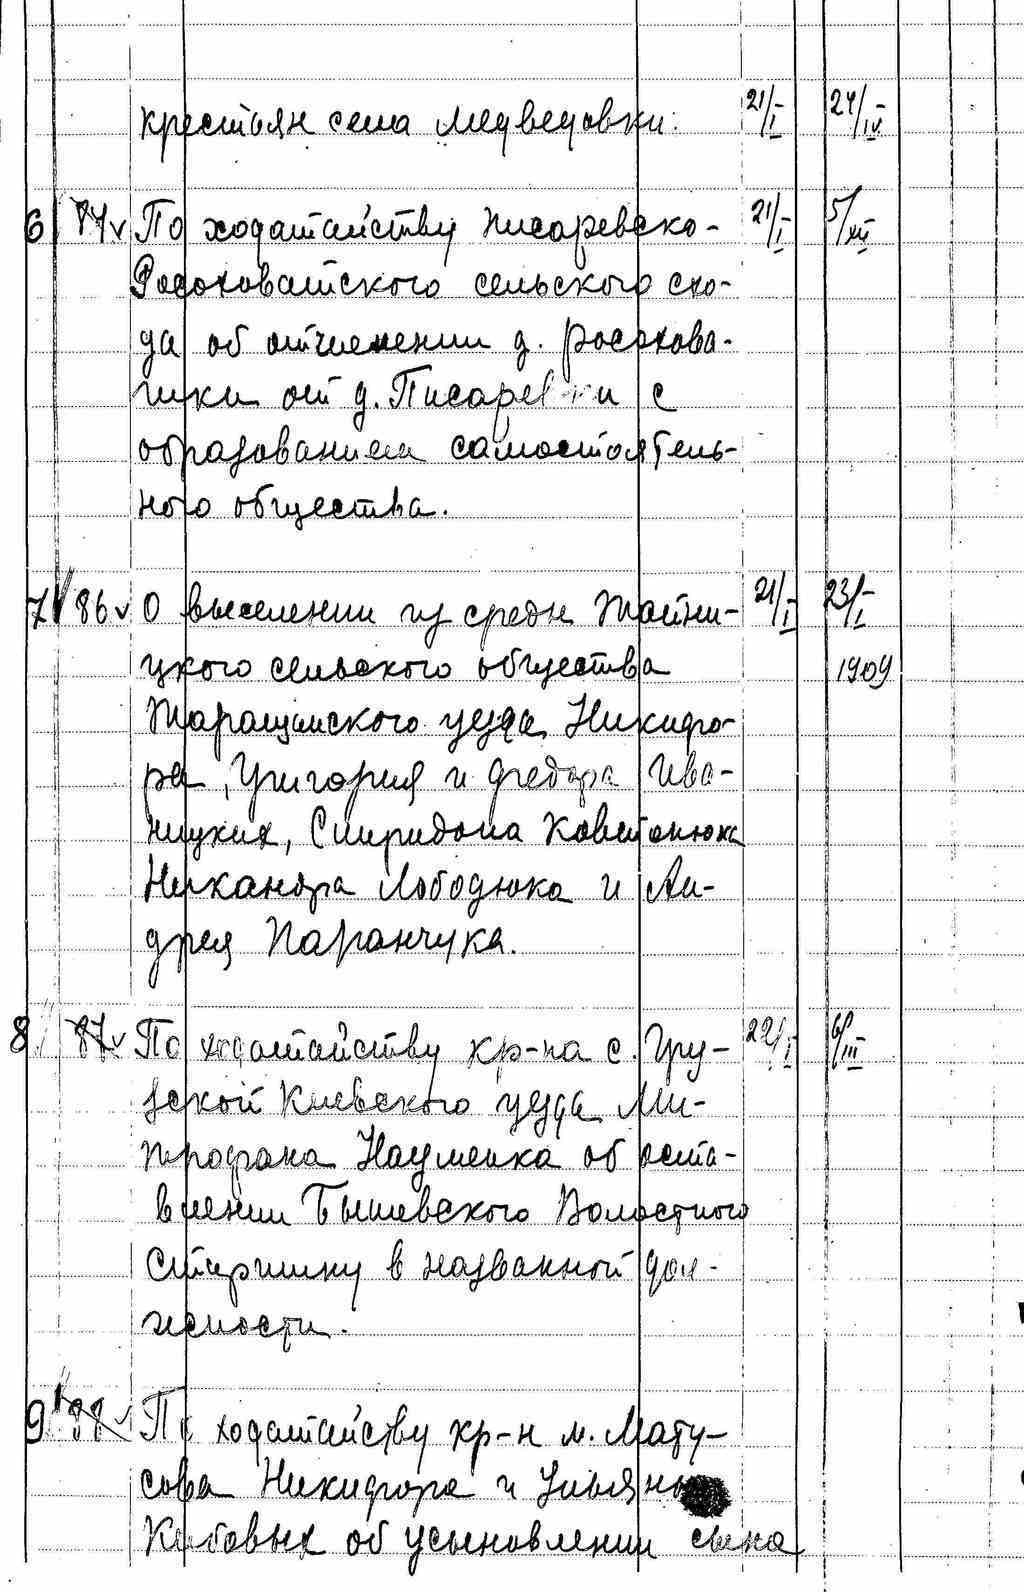 крестьян села Медведовки. 21/I 24/IV
6 По ходатайству Писаревско- 21/I 5/XII
Росоховатского сельского схо-
да об отчислении д. Росохова-
тки от д. Писаревки с
образованием самостоятель-
ного общества.
7 86 v О выселении из среды Тайни- 21/I 23/I
цкого сельского общества 1909
Таращанского уезда Никифо-
ра, Григория и Федора Ива-
ницких, Спиридона
Никандра Лободюка и Ан-
дрея Паранчука.
8 87 v По ходатайству кр-на с. Гру- 22/I 6/III
зской Киевского уезда Ми-
трофана Науменка об оста-
влении Бышевского Волостного
Старшину в названной дол-
жности.
9 88 v По ходатайству кр-н м. Мату-
сова Никифора и Ульяны
об усыновлении сына